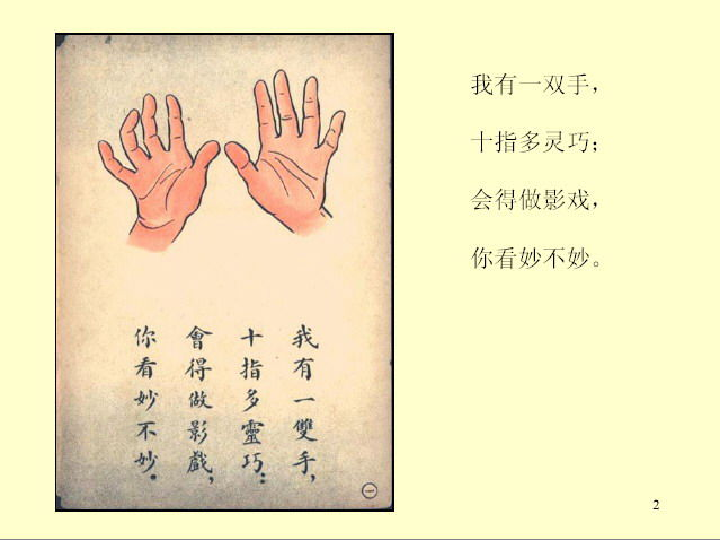 我有一雙手，
十指多靈巧：
會得做影戲，
你看妙不妙。
我有一双手，
十指多灵巧；
会得做影戏，
你看妙不妙。
2